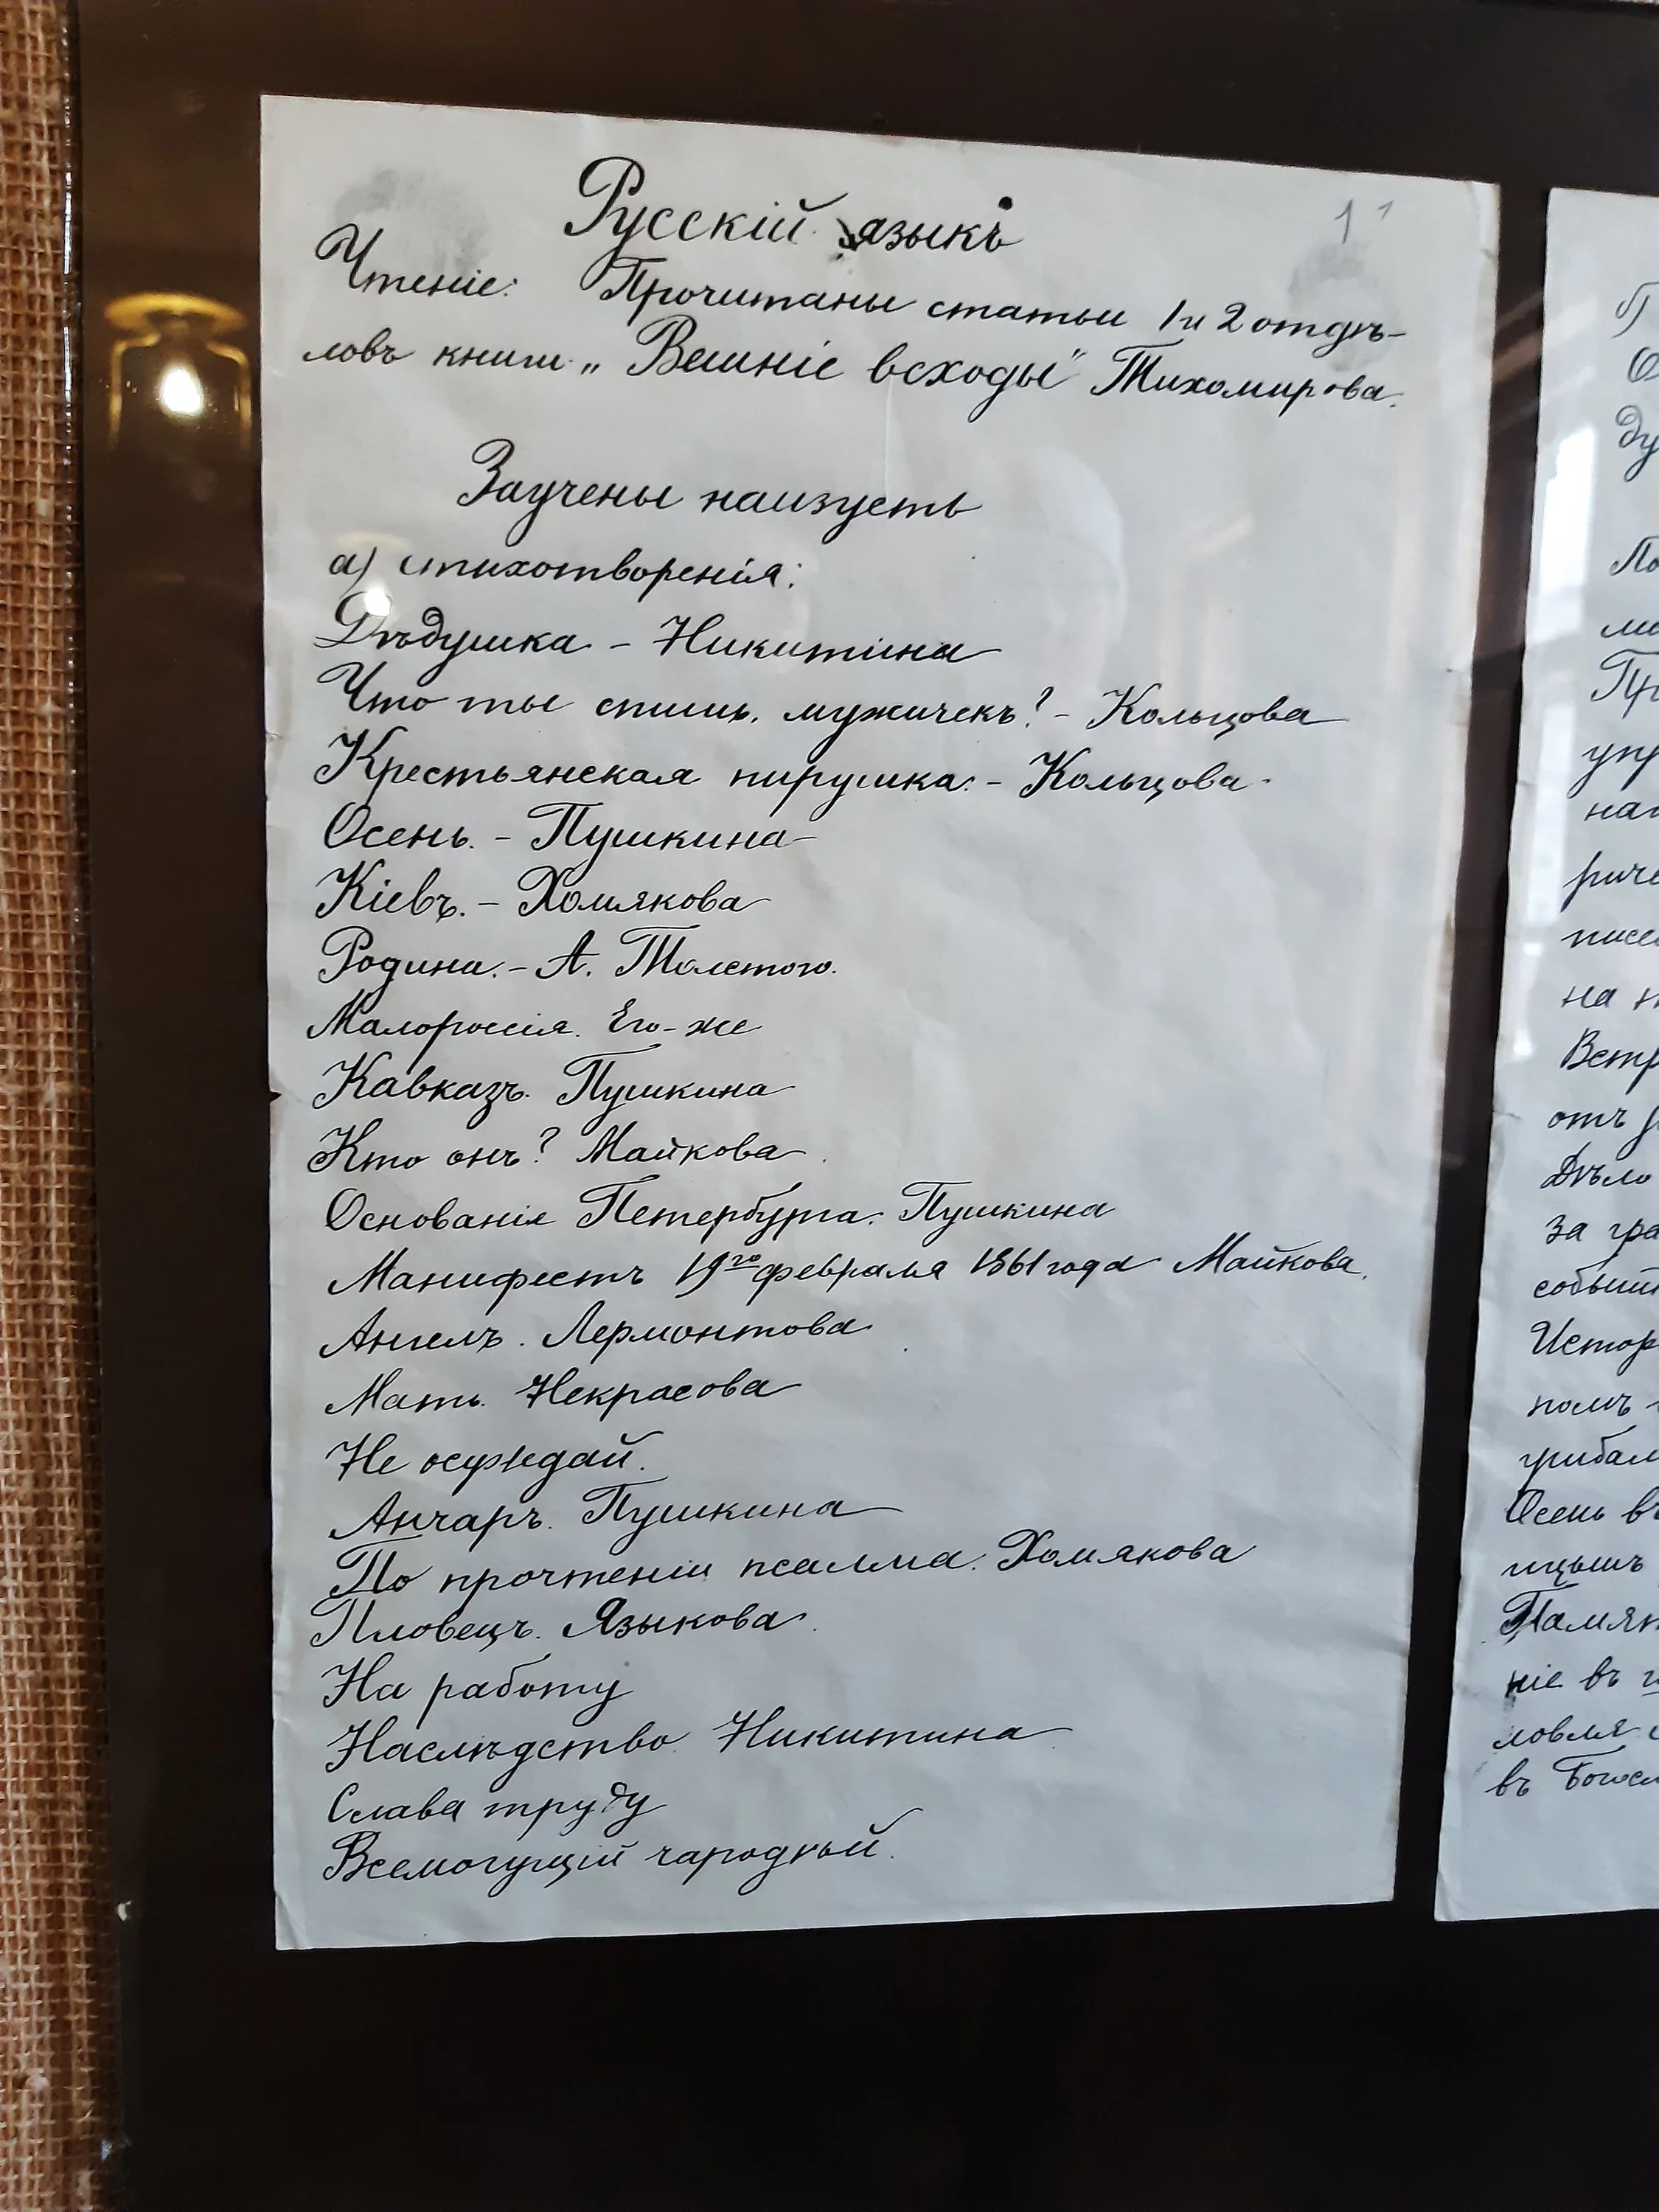 Русскій языкъ
1
Чтеніе: Прочитаны статьи 1 и 2 отдѣ-
ловъ книги „Вешніе всходы" Тихомирова.
Заучены наизусть
а) стихотворенія:
Дѣдушка - Никитина
Что ты спишь, мужичекъ? - Кольцова
Крестьянская пирушка. - Кольцова.
Осень. - Пушкина
Кіевъ. - Хомякова
Родина. - А. Толстого.
Малороссія. Его-же
Кавказъ. Пушкина
Кто онъ? Майкова.
Основаніе Петербурга. Пушкина
Манифестъ 19го февраля 1861 года Майкова.
Ангелъ. Лермонтова
Мать. Некрасова
Не осуждай.
Анчаръ. Пушкина
По прочтеніи псалма. Хомякова
Пловецъ. Языкова.
На работу
Наслѣдство. Никитина
Слава труду
Всемогущій чародѣй.
б)
ду
По
ми
Пр
упр
наг
риче
писе
на
Встр
отъ
Дѣло
за гра
событі
Истор
номъ
грибам
Осень въ
ицынъ
Памят
ніе въ
ловля
въ Богосл